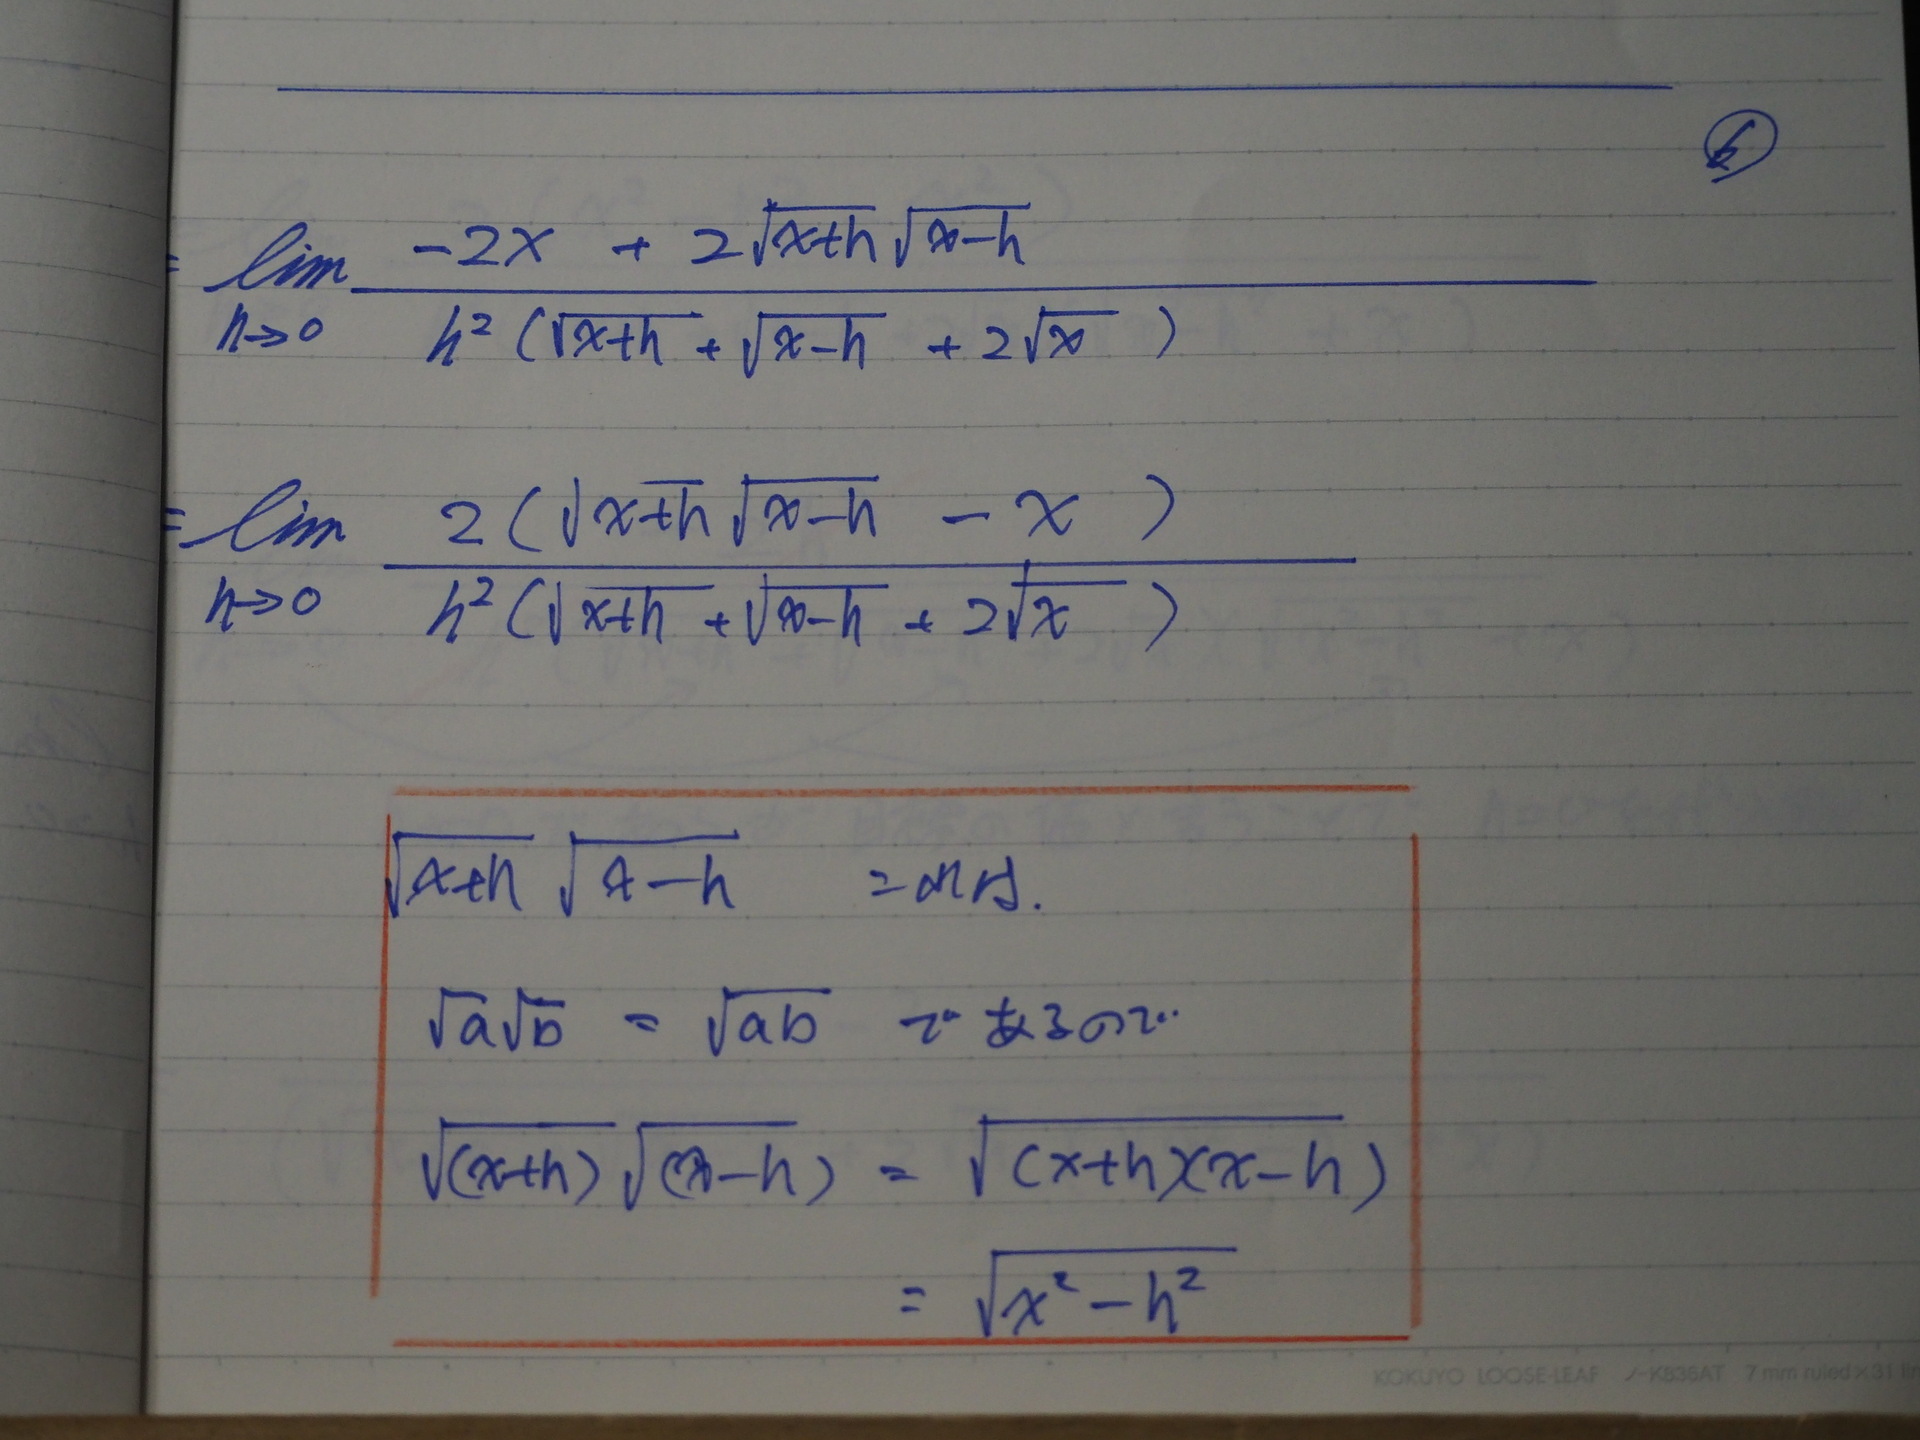 ⑥
= lim -2x + 2√(x+h) √(x-h)
h→0 h² (√(x+h) + √(x-h) + 2√x )
= lim 2 ( √(x+h) √(x-h) - x )
h→0 h² (√(x+h) + √(x-h) + 2√x )
√(x+h) √(x-h) =
√a√b = √ab であるので
√(x+h) √(x-h) = √(x+h)(x-h)
= √(x² - h²)
KOKUYO LOOSE-LEAF ノ-K836AT 7 mm ruled×31